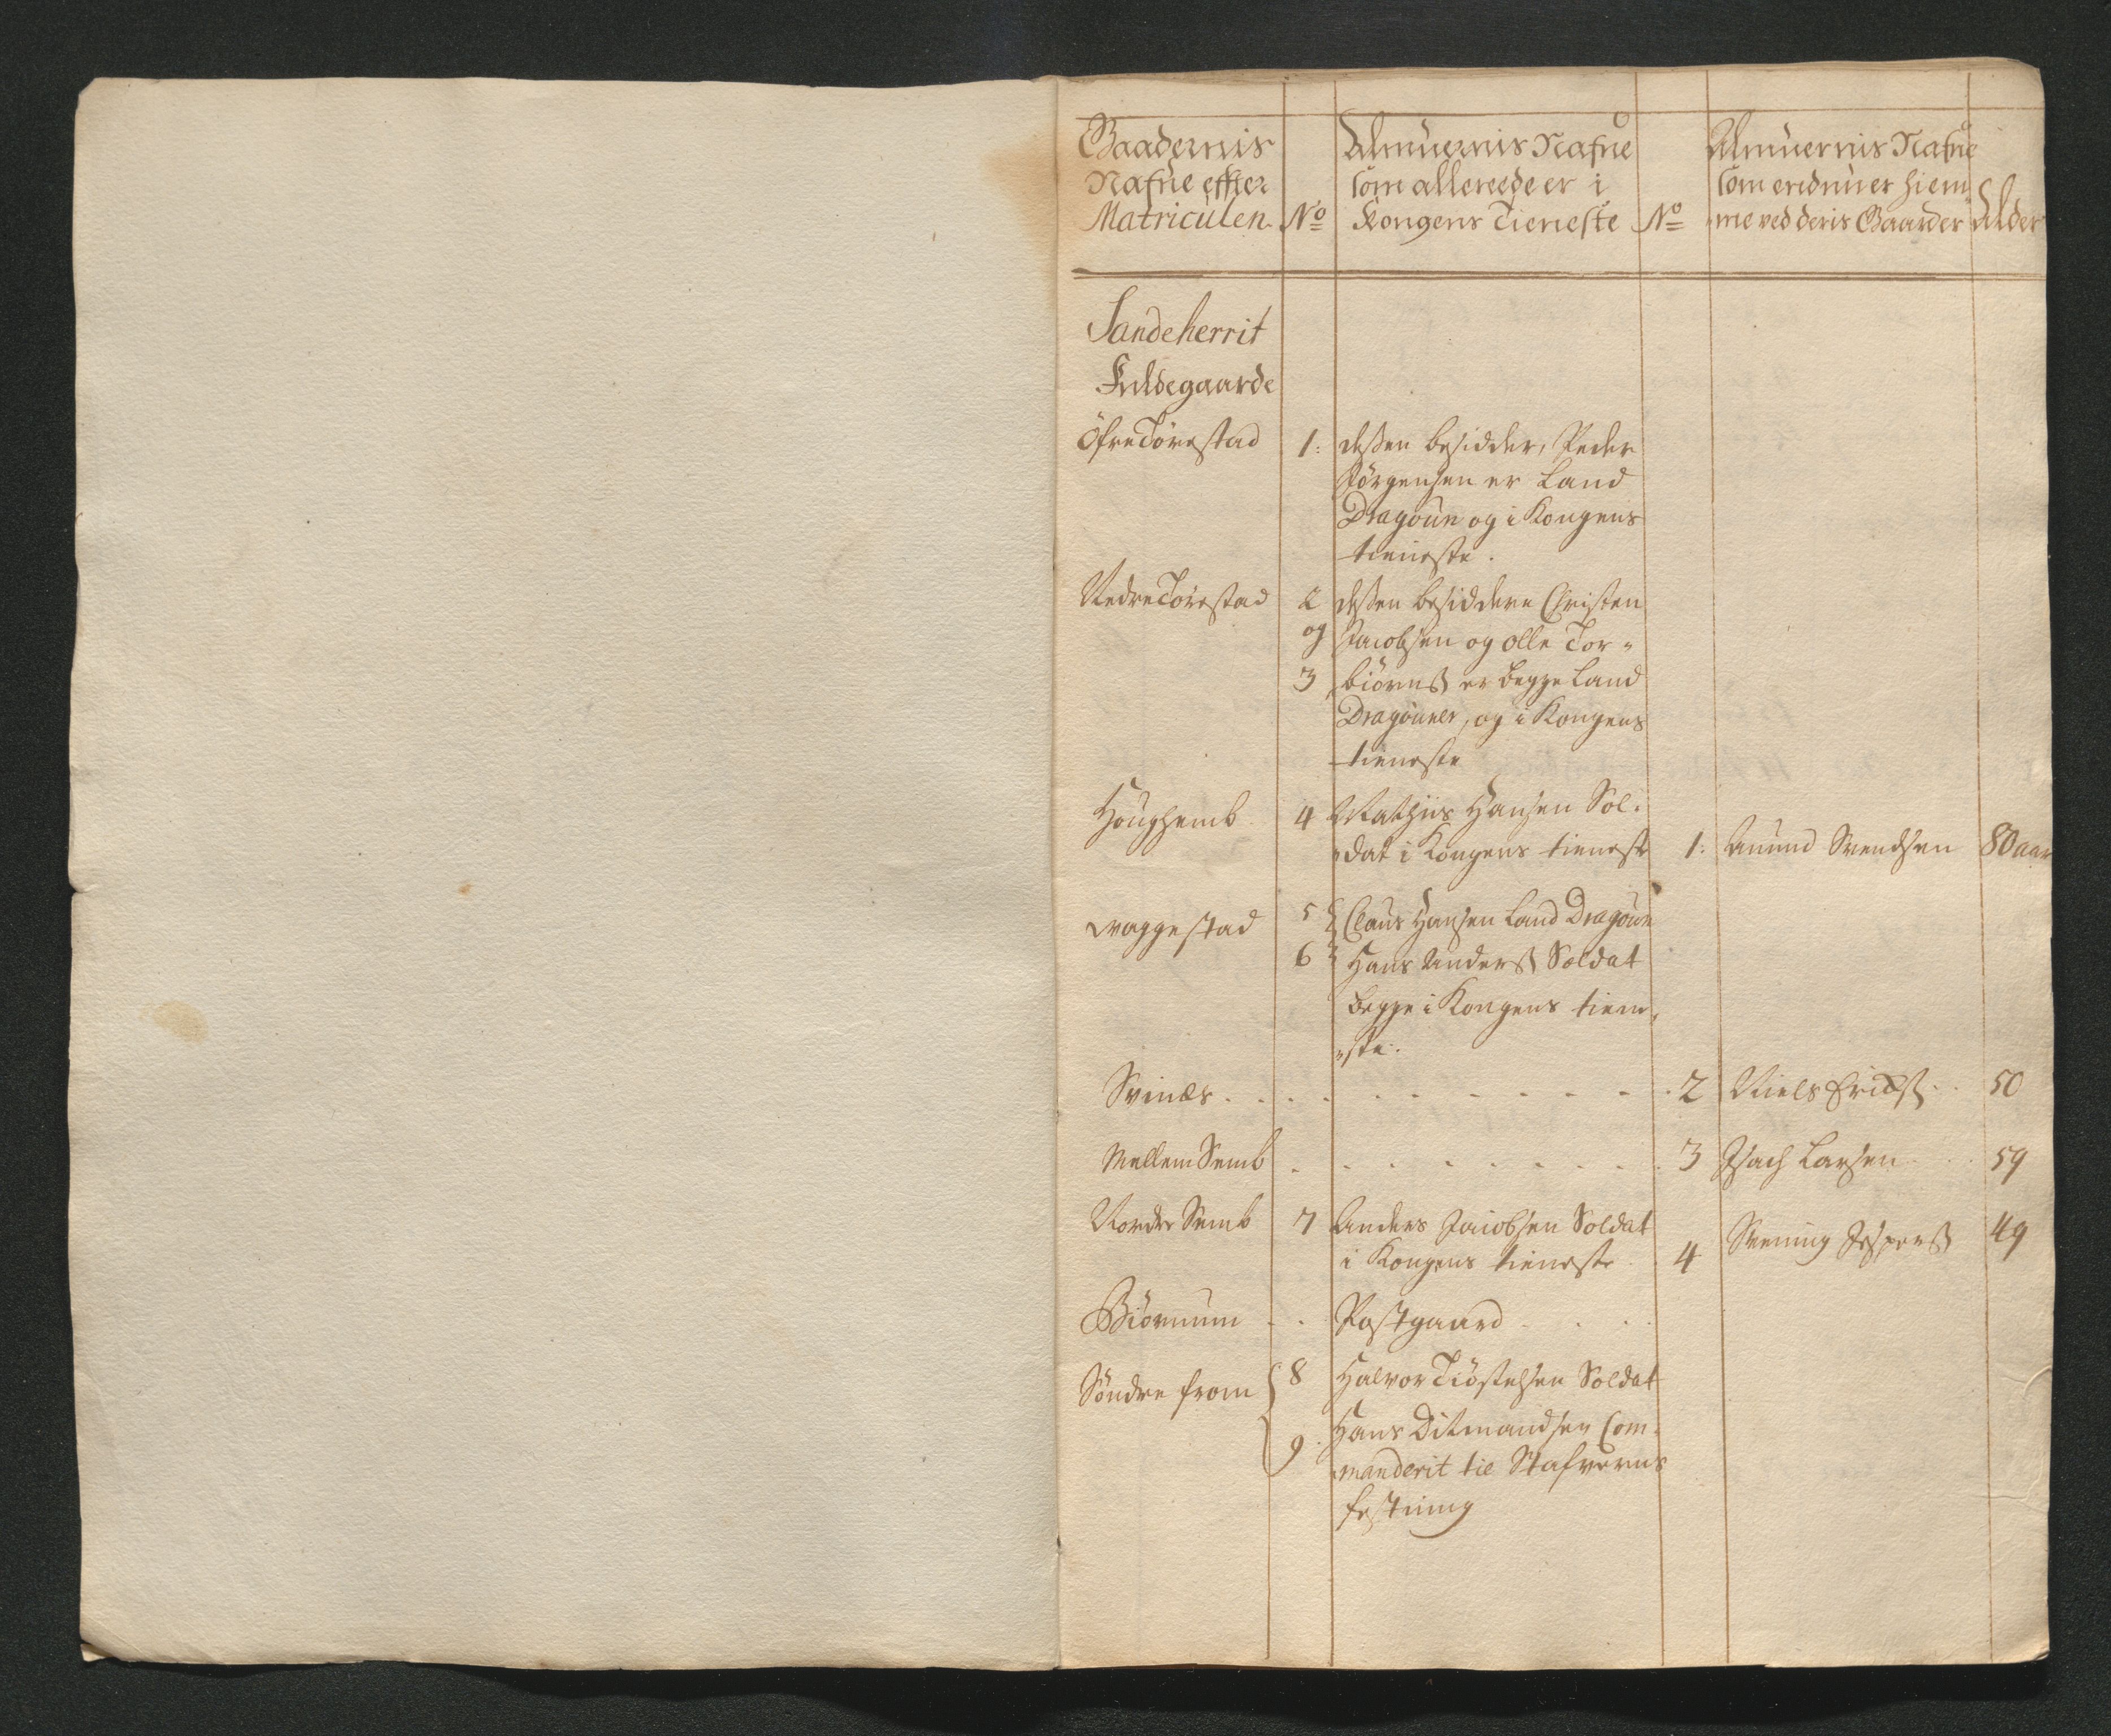 Gaadernis
Nafne effter
Matriculen.
No
Almuernis Nafne
som allereede er i
Kongens Tieneste
No
Almuernis Nafne
som endnu er hiem
me ved deris Gaarder
Alder
Sandeherrit
Fuldegaarde
Öfre Törestad 1: deßen besidder, Peder
Jörgensen er Land
Dragoun og i Kongens
tieneste.
Nedre Törestad 2 deßen besiddere Christen
og Jacobsen og Olle Tor„
3 biörnß er begge Land
Dragouner, og i Kongens
tieneste
Houghemb 4 Mathiis Hansen Sol„
„dat i Kongens tieneste 1. Amund Svendsen 80 aar
Waggestad 5 Claus Hansen Land Dragoun
6 Hans Anderß Soldat
begge i Kongens tiene„
„ste.
Svinæs 2 Niels Ericß 50
Mellem Semb 3 Isach Larsen 59
Nordre Semb 7 Anders Jacobsen Soldat
i Kongens tieneste 4 Svening Jesperß 49
Biörnum Postgaard
Söndre from 8 Halvor Tiöstelsen Soldat
9. Hans Ditmandsen Com„
manderit til Stafverns
festning